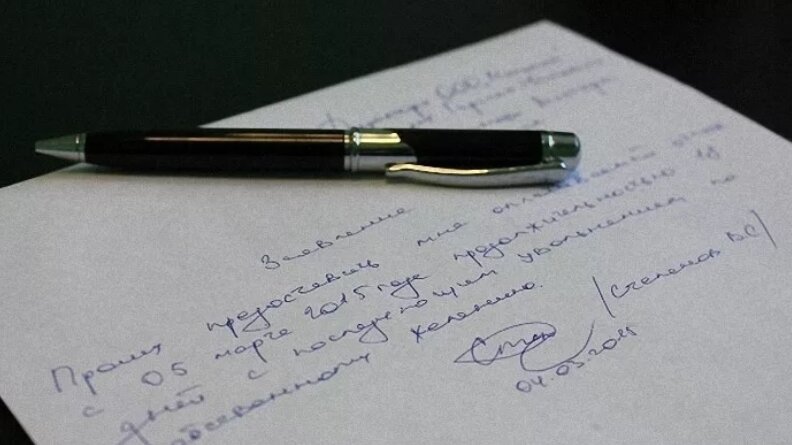 Директору
Заявление
Прошу предоставить мне оплачиваемый отпуск
с 05 марта 2015 года продолжительностью 14
дней с последующим увольнением по
собственному желанию.
/Степанов ВС/
04.03.2015